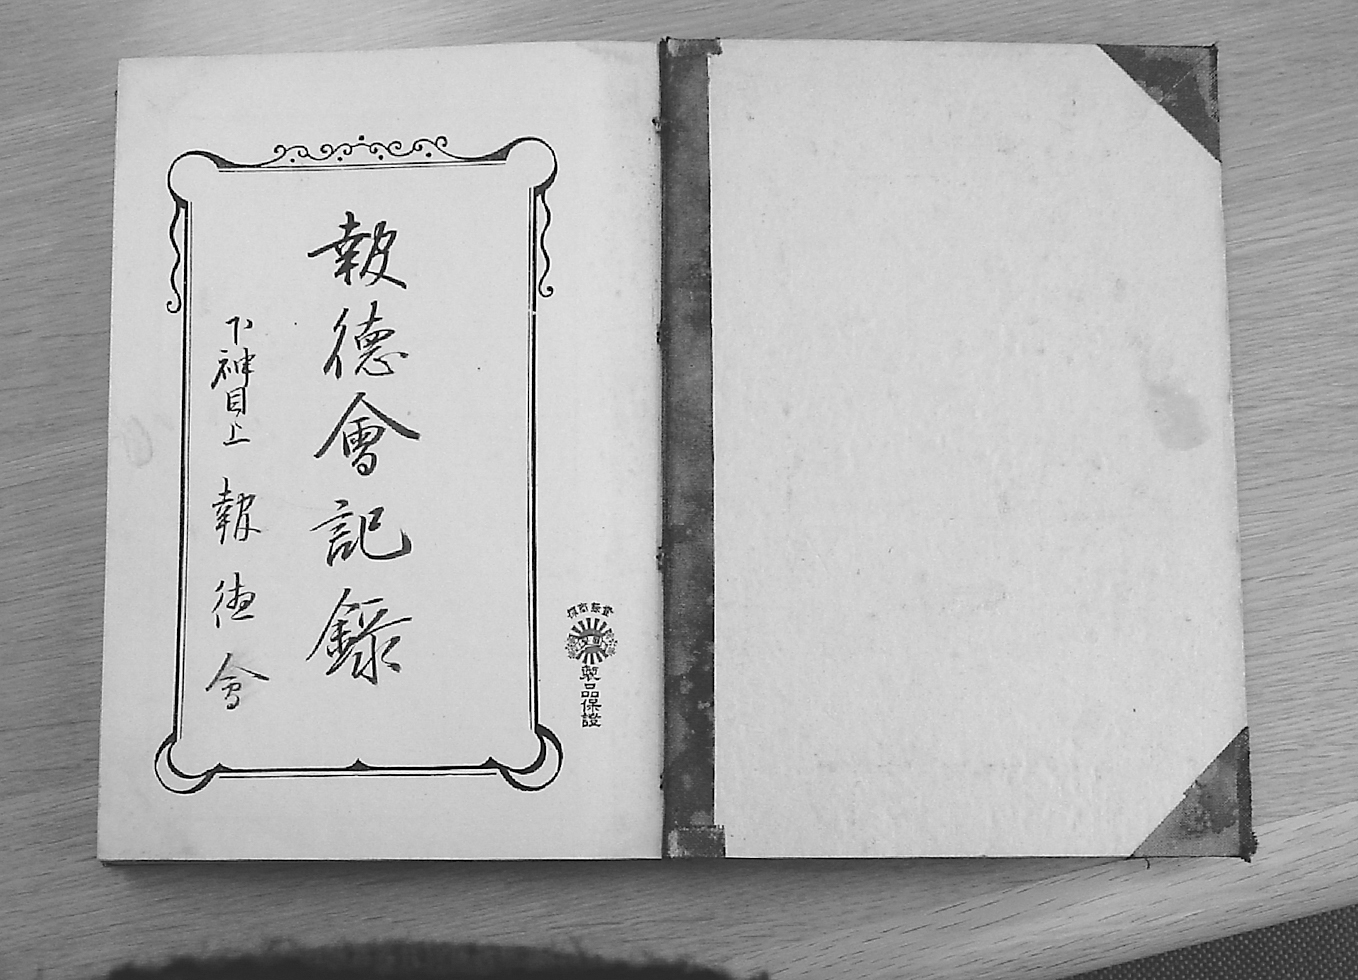 製品保證
報德會記錄
下神目上 報徳会